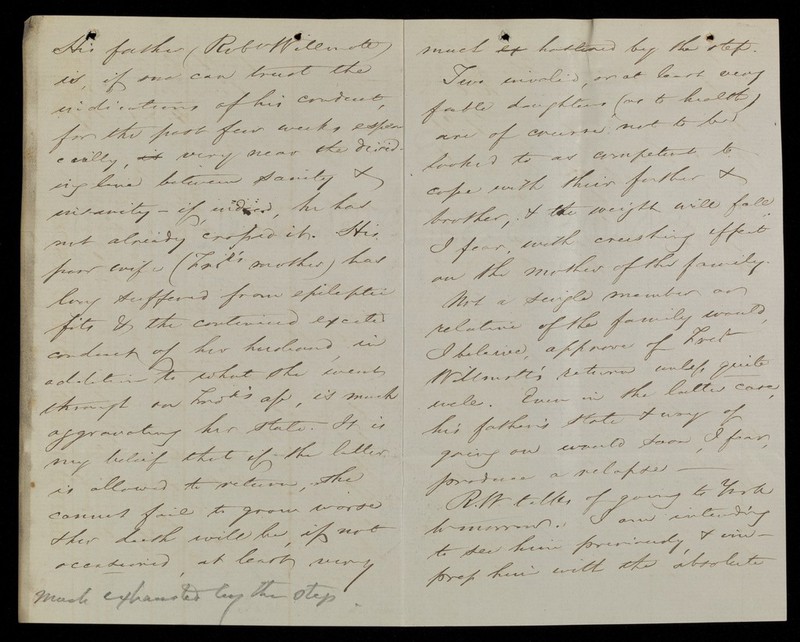 His father (Robt Willmott)
is, if one can trust the
indications of his conduct,
for the past few weeks espe-
cially, is very near the divid-
ing line between sanity &
insanity – if, indeed, he has
not already crossed it. His
poor wife (Fred's mother) has
long suffered from epileptic
fits & the continued excited
conduct of her husband, in
addition to what she went
through on Fred's a/c, is much
aggravating her state. It is
my belief that if the latter
is allowed to return, she
cannot fail to grow worse
& her death will be, if not
occasioned, at least very
much exhausted by the step.
much hastened by the step.
Two invalid, or at least very
feeble daughters (as to health)
are of course not to be
looked to as competent to
cope with their father &
brother, & the weight will fall
I fear, with crushing effect
on the mother of the family.
Not a single member or
relative of the family would,
I believe, approve of Fred
Willmott's return unless quite
well. Even in the latter case,
his father's state & way of
going on would soon, I fear,
produce a relapse —
R.W talks of going to York
to-morrow. I am intending
to see him previously, & im-
press him with the absolute